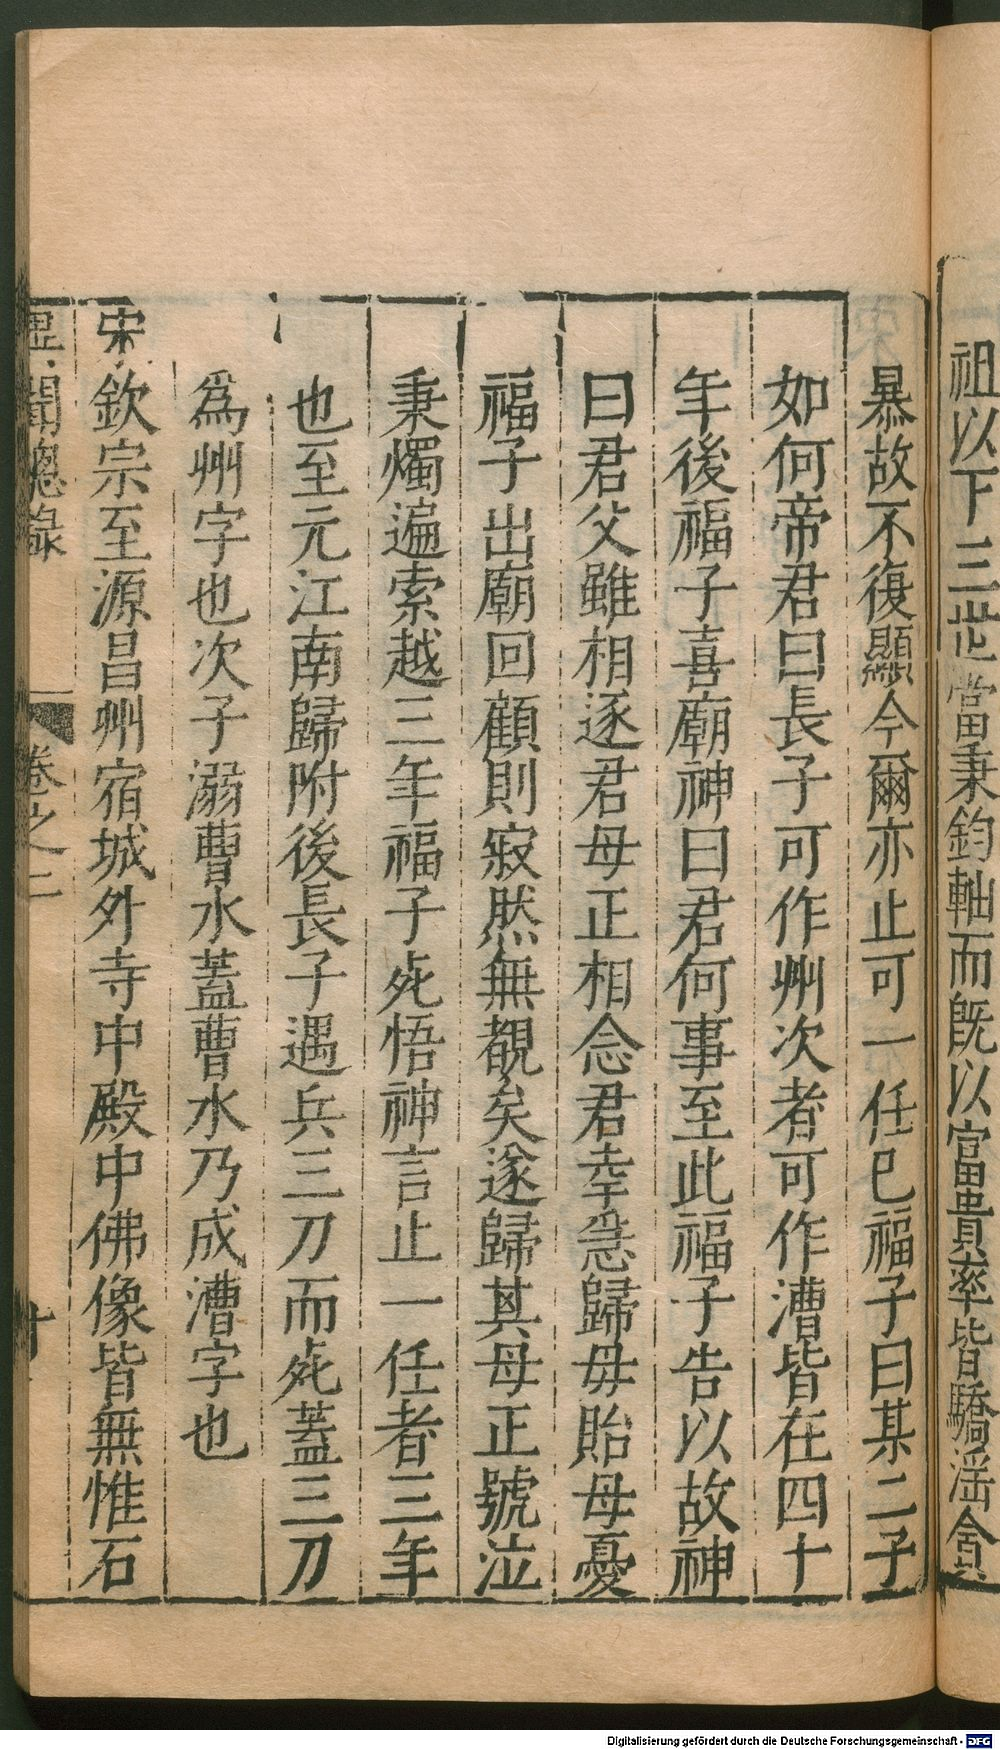 祖以下三世當秉鈞軸而旣以富貴率皆驕滛貪
暴故不復顯今爾亦止可一任巳福子曰某二子
如何帝君曰長子可作州次者可作漕皆在四十
年後福子喜廟神曰君何事至此福子告以故神
曰君父雖相逐君母正相念君幸急歸毋貽母憂
福子出廟回顧則寂然無覩矣遂歸其母正號泣
秉燭遍索越三年福子死悟神言止一任者三年
也至元江南歸附後長子遇兵三刀而死蓋三刀
爲州字也次子溺曹水蓋曹水乃成漕字也
宋欽宗至源昌州宿城外寺中殿中佛像皆無惟石
異聞總錄 卷之二
Digitalisierung gefördert durch die Deutsche Forschungsgemeinschaft - DFG